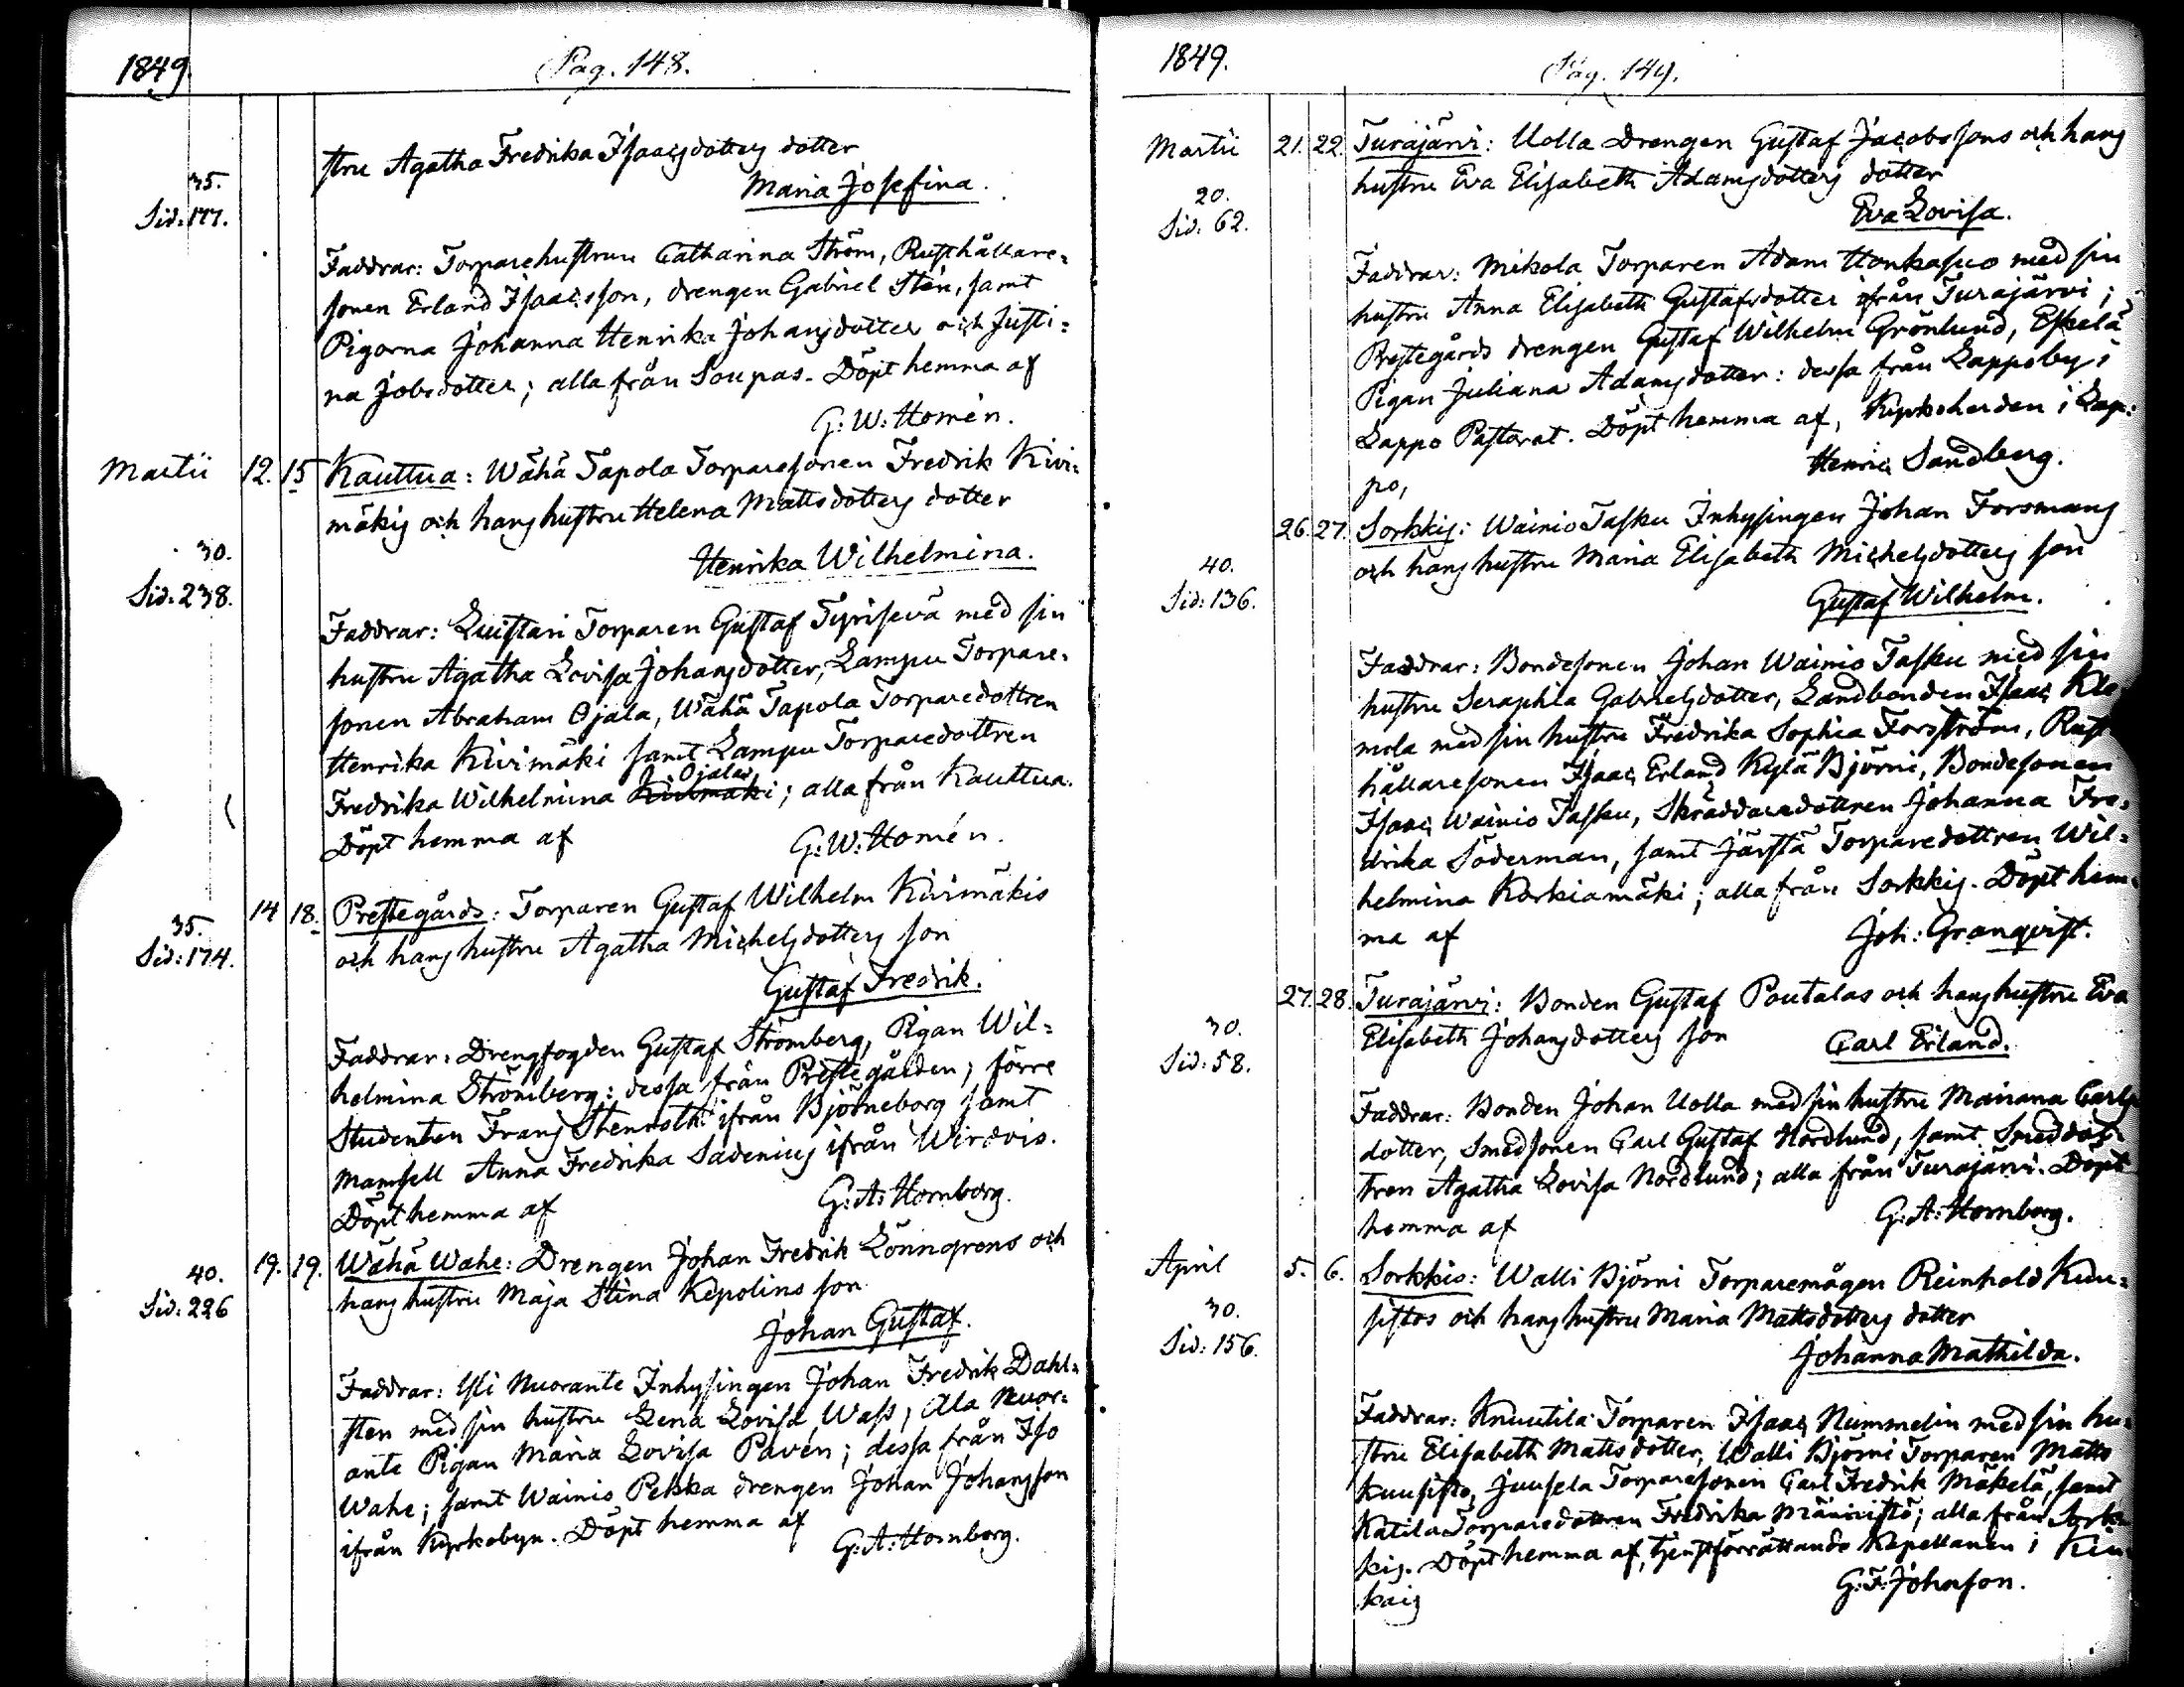 1849.
Pag. 148.
stru Agatha Fredrika Isaacsdotters dotter
35.
Maria Josefina.
Sid: 177.
Faddrar: Torparehustrun Catharina Ström, Rusthållare-
sonen Erland Isaacsson, drengen Gabriel Stén, samt
Pigorna Johanna Henrika Johansdotter och Justi-
na Jobsdotter; alla från Soupas. Döpt hemma af
G: W: Homén.
Martii 12. 15 Kauttua: Wähä Tapola Torparesonen Fredrik Kivi-
mäkis och hans hustru Helena Mattsdotters dotter
30.
Henrika Wilhelmina.
Sid: 238.
Faddrar: Luistari Torparen Gustaf Tyrisevä med sin
hustru Agatha Lovisa Johansdotter, Lampu Torpare-
sonen Abraham Ojala, Wähä Tapola Torparedottren
Henrika Kivimäki samt Lampu Torparedottren
Ojala
Fredrika Wilhelmina Kivimäki; alla från Kauttua.
Döpt hemma af G: W: Homén.
14 18. Prestegårds: Torparen Gustaf Wilhelm Kivimäkis
35.
och hans hustru Agatha Michelsdotters son
Sid: 174.
Gustaf Fredrik.
Faddrar: Drengfogden Gustaf Strömberg, Pigan Wil-
helmina Strömberg: dessa från Prestegården; förre
Studenten Frans Stenroth ifrån Björneborg samt
Mamsell Anna Fredrika Sadenius ifrån Wirdvis.
Döpt hemma af G: A: Hornborg.
19. 19. Wähä Wahe: Drengen Johan Fredrik Lönngrens och
40.
hans hustru Maja Stina Kepolins son
Sid: 226
Johan Gustaf.
Faddrar: Yli Nuorante Inhysingen Johan Fredrik Dahl-
sten med sin hustru Lena Lovisa Wass, Ala Nuor-
ante Pigan Maria Lovisa Pavén; dessa från Iso
Wahe; samt Wainio Pelska drengen Johan Johansson
ifrån Kyrkobyn. Döpt hemma af
G: A: Hornborg.
1849.
Pag. 149.
Martii 21. 22. Turajärvi: Uolla Drengen Gustaf Jacobssons och hans
hustru Eva Elisabeth Adamsdotters dotter
20.
Eva Lovisa.
Sid. 62.
Faddrar: Mikola Torparen Adam Honkasuo med sin
hustru Anna Elisabeth Gustafsdotter ifrån Turajärvi;
Prestegårds drengen Gustaf Wilhelm Grönlund, Eskelä
Pigan Juliana Adamsdotter: dessa från Lappoby i
Lappo Pastorat. Döpt hemma af, Kyrkoherden i Lap-
po, Henric Sandberg.
26. 27. Sorkkis: Wainio Tasku Inhysingen Johan Forsmans
40.
och hans hustru Maria Elisabeth Michelsdotters son
Sid: 136.
Gustaf Wilhelm.
Faddrar: Bondesonen Johan Wainio Tasku med sin
hustru Seraphia Gabrielsdotter, Landbonden Isaac Kle
mola med sin hustru Fredrika Sophia Forsström, Rust
hållaresonen Isaac Erland Kylä Björni, Bondesonen
Isaac Wainio Tasku, Skräddaredottren Johanna Fre-
drika Söderman, samt Järstä Torparedottren Wil-
helmina Korkiamäki; alla från Sorkkis. Döpt hem-
ma af Joh: Granqvist.
27. 28. Turajärvi: Bonden Gustaf Poutalas och hans hustru Eva
30.
Elisabeth Johansdotters son Carl Erland.
Sid: 58.
Faddrar: Bonden Johan Uolla med sin hustru Mariana Carls
dotter, Smedsonen Carl Gustaf Nordlund, samt Smeddot-
tren Agatha Lovisa Nordlund; alla från Turajärvi. Döpt
hemma af G: A: Hornborg.
April 5. 6. Sorkkis: Walli Björni Torparemågen Reinhold Kuu-
30.
sistos och hans hustru Maria Mattsdotters dotter
Sid: 156.
Johanna Mathilda.
Faddrar: Knuutila Torparen Isaac Nummelin med sin hu-
stru Elisabeth Mattsdotter, Walli Björni Torparen Matts
Kuusisto, Juusela Torparesonen Carl Fredrik Mäkelä, samt
Katila Torparedottren Fredrika Männistö; alla från Sork-
kis. Döpt hemma af, tjenstförrättande Kapellanen i Kiu
kais G: F: Johnsson.